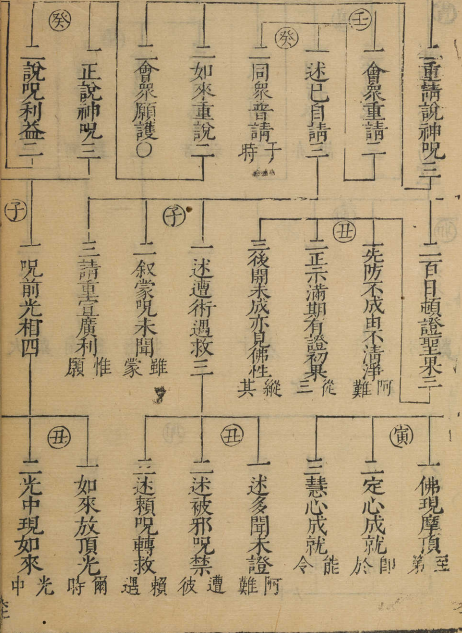 壬
癸
癸
二重請說神呪三
二會衆重請二
一述已自請三
二同衆普請 于時
二如來重說二
二會衆願護〇
一正說神呪三
二說呪利益二
丑
子
子
二百日頓證聖果三
一先防不成由不清淨 阿難
二正示滿期有證初果 從三
三後開未成亦見佛性 縱其
一述遭術遇救三
二叙蒙呪未聞 雖蒙
三請重宣廣利 惟願
一呪前光相四
寅
丑
丑
一佛現摩頂 至第
二定心成就 即於
三慧心成就 能令
一述多聞未證 阿難
二述被邪呪禁 遭彼
三述賴呪轉救 賴遇
一如來放頂光 爾時
二光中現如來 光中